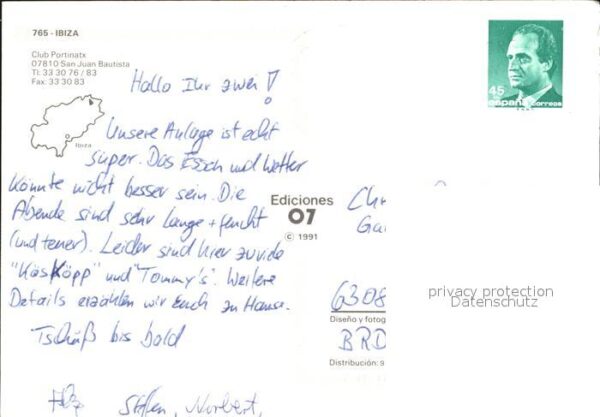 765 - IBIZA
Club Portinatx
07810 San Juan Bautista
Tl: 33 30 76 / 83
Fax: 33 30 83
Ibiza
45
españa correos
Hallo Ihr zwei!
Unsere Anlage ist echt
super. Das Essen und Wetter
könnte nicht besser sein. Die
Abende sind sehr lange + feucht
(und teuer). Leider sind hier zuviele
"Käsköpp" und "Tommy's". Weitere
Details erzählen wir Euch zu Hause.
Tschüß bis bald
Steffen, Norbert,
Ediciones
07
© 1991
6308
Diseño y fotog
BRD
Distribución: 9
privacy protection
Datenschutz